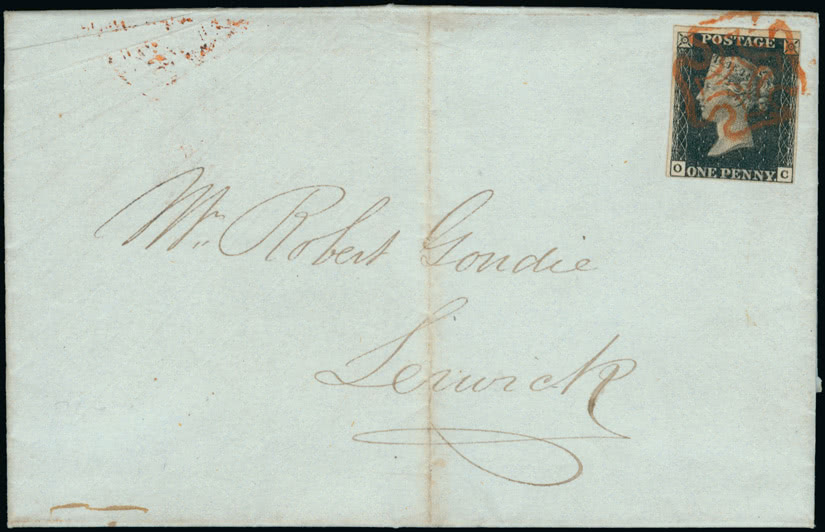 POSTAGE
O C
ONE PENNY.
Mr. Robert Goudie
Lerwick